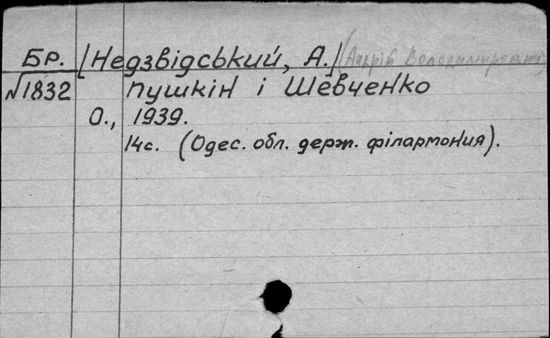 Бр. [Недзвідський, А.] (Андрій Володимирович)
№1832 Пушкін і Шевченко
О., 1939.
14с. (Одес. обл. держ. філармония).